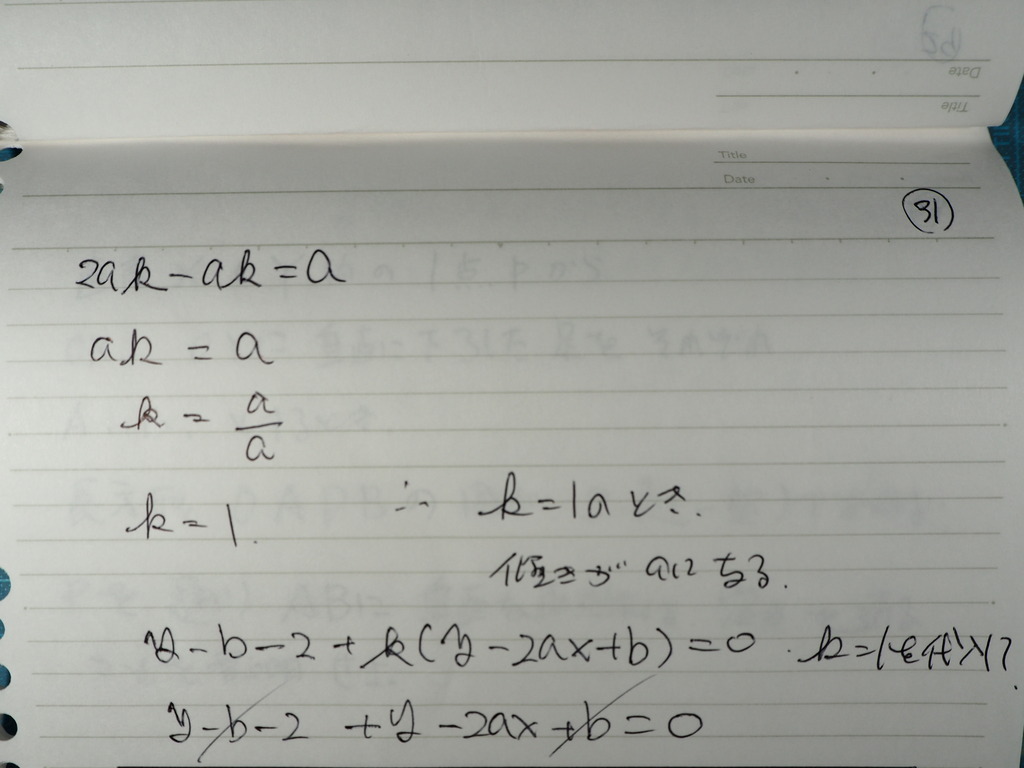 Title
Date
31
2ak-ak=a
ak=a
k=a/a
k=1. ∴ k=1のとき.
傾きがaになる.
y-b-2+k(y-2ax+b)=0. k=1を代入し.
y-b-2+y-2ax+b=0